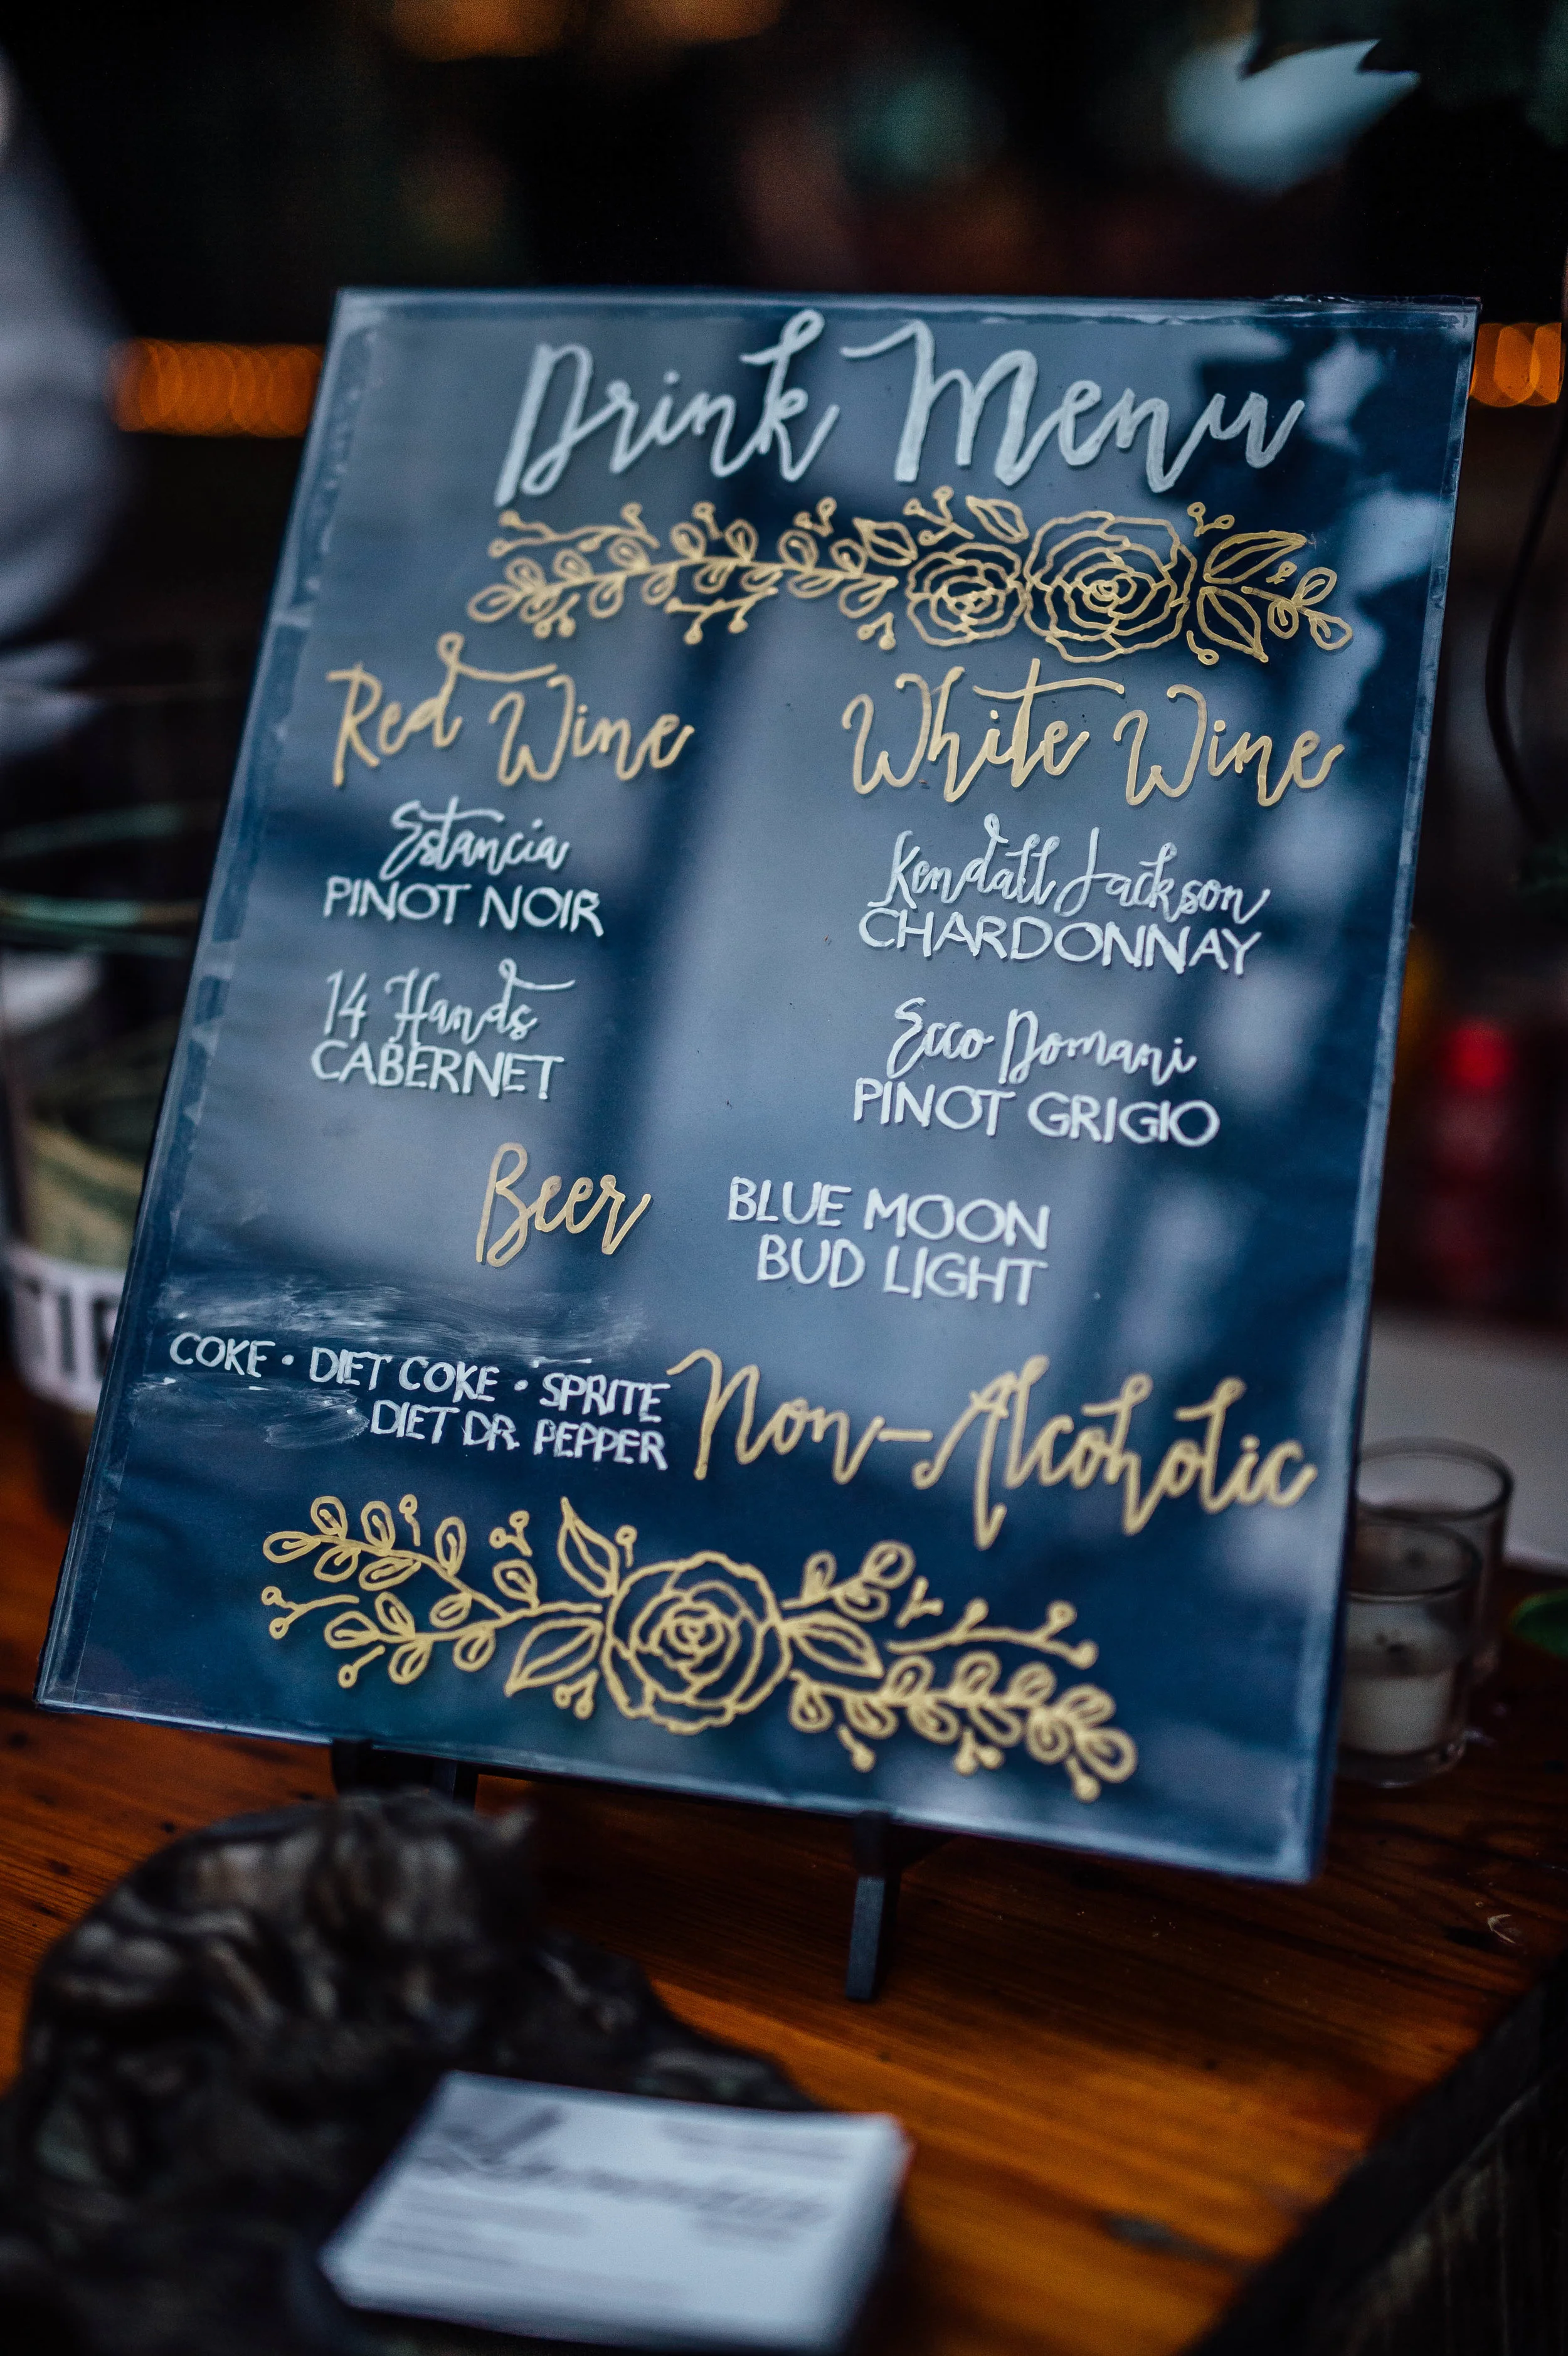 Drink Menu
Red Wine
Estancia
PINOT NOIR
14 Hands
CABERNET
White Wine
Kendall Jackson
CHARDONNAY
Ecco Domani
PINOT GRIGIO
Beer
BLUE MOON
BUD LIGHT
COKE • DIET COKE • SPRITE
DIET DR. PEPPER
Non-Alcoholic